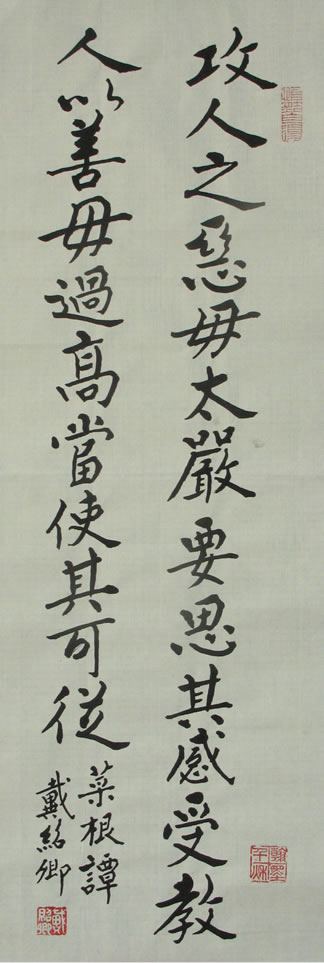 攻人之惡毋太嚴要思其感受教
人以善毋過高當使其可從
菜根譚
戴紹卿
翰墨千秋